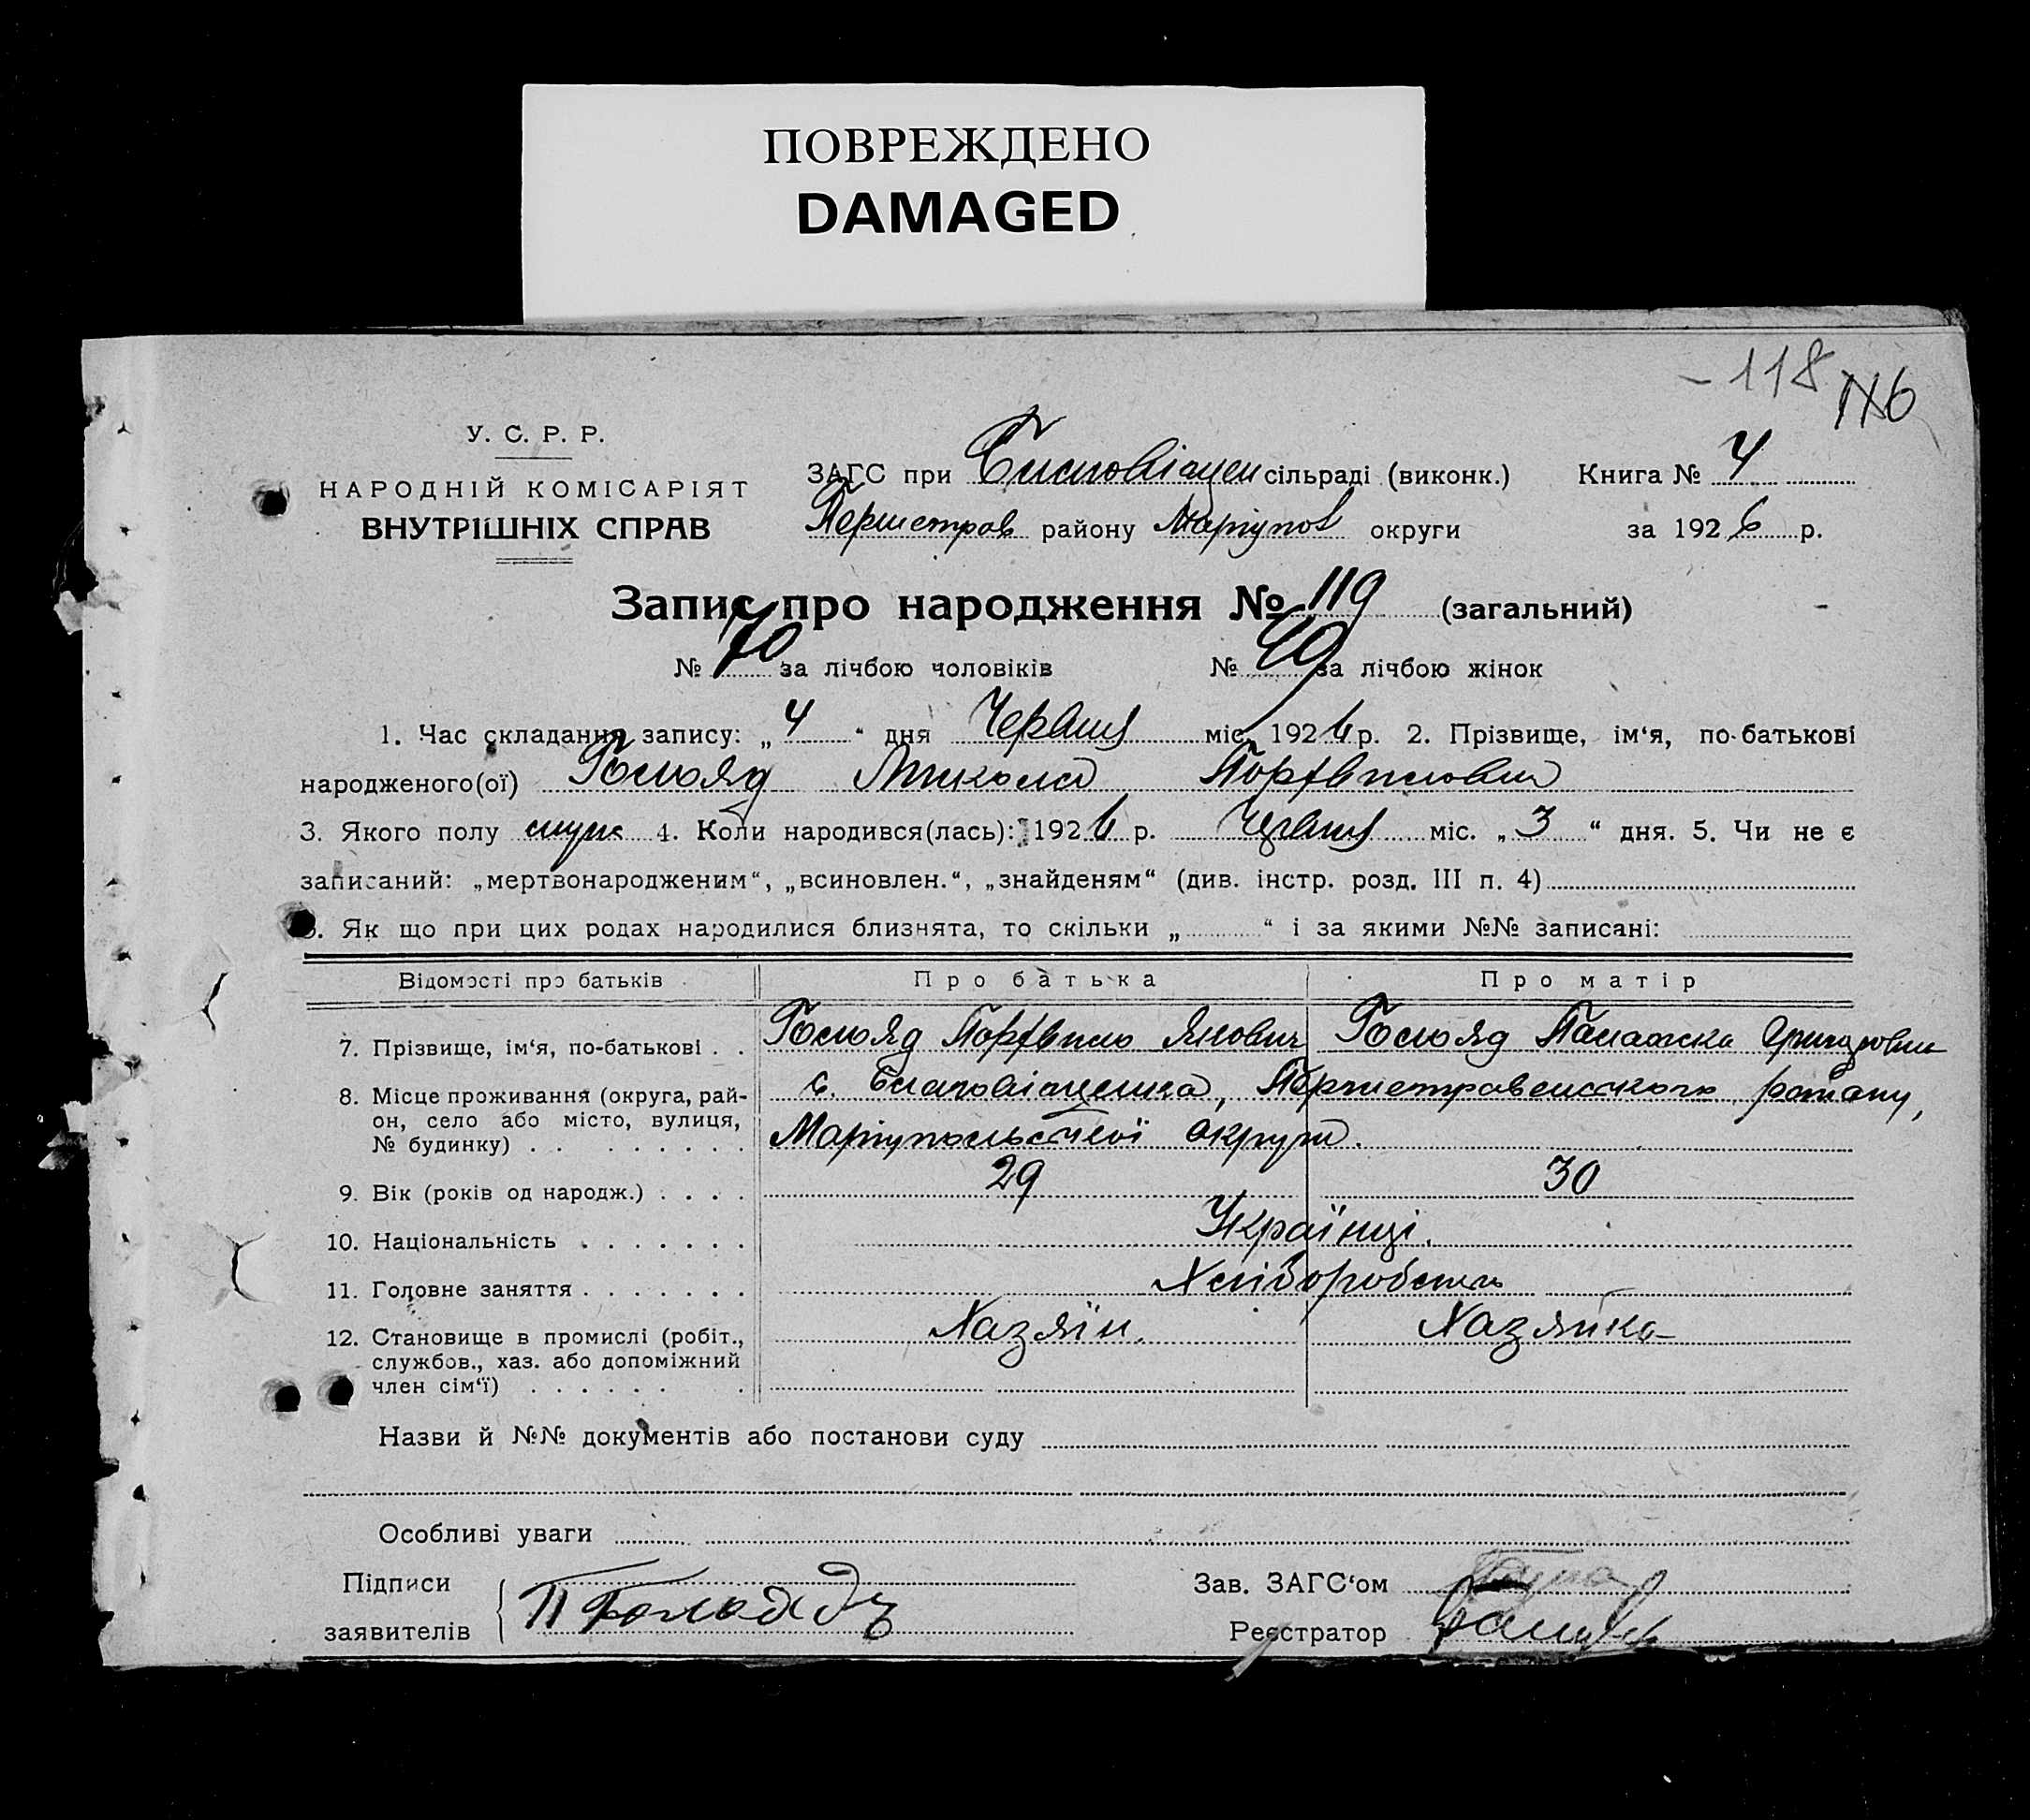 ПОВРЕЖДЕНО
DAMAGED
-118
У. С. Р. Р.
НАРОДНІЙ КОМІСАРІЯТ
ВНУТРІШНІХ СПРАВ
ЗАГС при Благовіщен сільраді (виконк.) Книга № 4
Першетрав району Маріупол округи за 1926 р.
Запис про народження № 119 (загальний)
№ 70 за лічбою чоловіків № 49 за лічбою жінок
1. Час складання запису: „4“ дня Червня міс. 1926 р. 2. Прізвище, ім‘я, по-батькові
народженого(ої) Микола
3. Якого полу муж 4. Коли народився(лась): 1926 р. Червня міс. „3“ дня. 5. Чи не є
записаний: „мертвонародженим“, „всиновлен.“, „знайденям“ (див. інстр. розд. III п. 4)
6. Як що при цих родах народилися близнята, то скільки „ “ і за якими №№ записані:
Відомості про батьків Про батька Про матір
7. Прізвище, ім‘я, по-батькові . .
8. Місце проживання (округа, рай-
он, село або місто, вулиця,
№ будинку) . . . . . . . .
с. Благовіщенка, Першетравенського району,
Маріупольської округи.
9. Вік (років од народж.) . . . . 29 30
10. Національність . . . . . . . Українці.
11. Головне заняття . . . . . . . Хлібороби
12. Становище в промислі (робіт.,
службов., хаз. або допоміжний
член сім‘ї) . . . . . . .
Хазяїн. Хазяйка
Назви й №№ документів або постанови суду
Особливі уваги
Підписи
заявителів
Зав. ЗАГС‘ом
Реєстратор